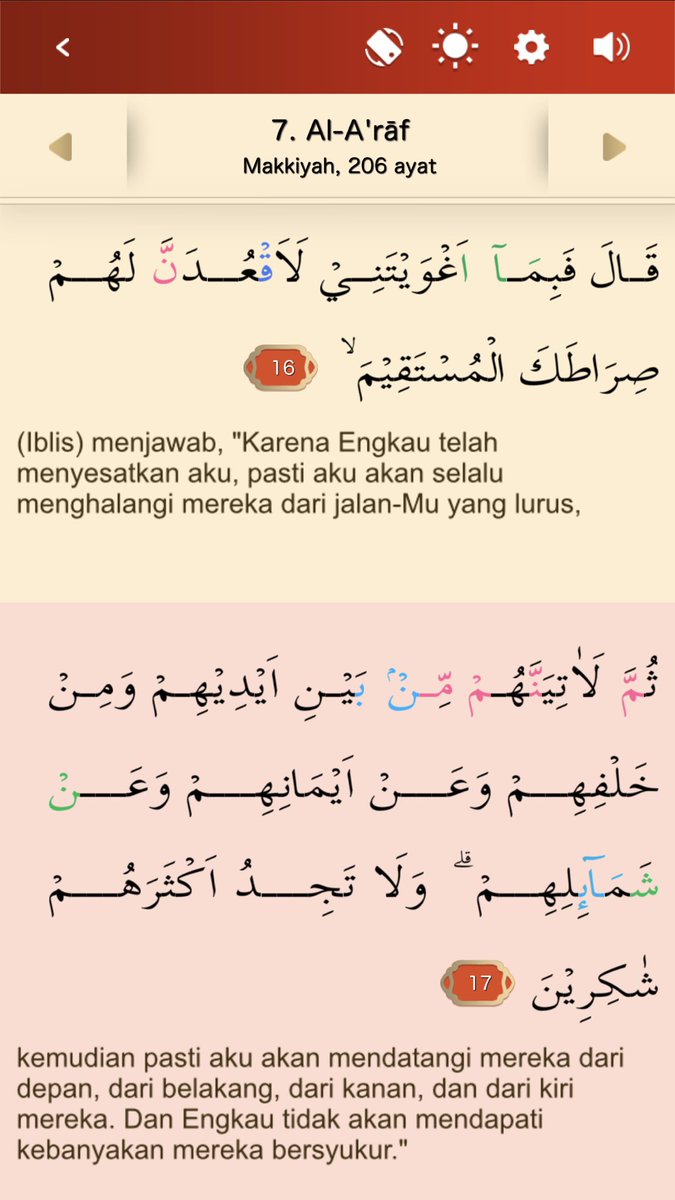 7. Al-A'rāf
Makkiyah, 206 ayat
قَالَ فَبِمَآ اَغْوَيْتَنِيْ لَاَقْعُدَنَّ لَهُمْ
صِرَاطَكَ الْمُسْتَقِيْمَۙ 16
(Iblis) menjawab, "Karena Engkau telah
menyesatkan aku, pasti aku akan selalu
menghalangi mereka dari jalan-Mu yang lurus,
ثُمَّ لَاٰتِيَنَّهُمْ مِّنْۢ بَيْنِ اَيْدِيْهِمْ وَمِنْ
خَلْفِهِمْ وَعَنْ اَيْمَانِهِمْ وَعَنْ
شَمَآىِٕلِهِمْۗ وَلَا تَجِدُ اَكْثَرَهُمْ
شٰكِرِيْنَ 17
kemudian pasti aku akan mendatangi mereka dari
depan, dari belakang, dari kanan, dan dari kiri
mereka. Dan Engkau tidak akan mendapati
kebanyakan mereka bersyukur."